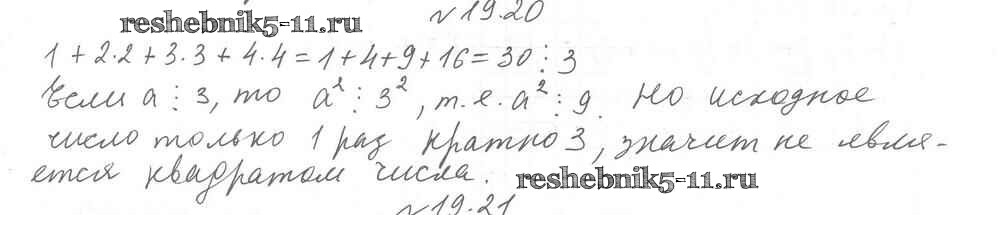 №19.20
reshebnik5-11.ru
1 + 2·2 + 3·3 + 4·4 = 1 + 4 + 9 + 16 = 30 ⋮ 3
Если a ⋮ 3, то a² ⋮ 3², т.е. a² ⋮ 9. Но исходное
число только 1 раз кратно 3, значит не явля-
ется квадратом числа. reshebnik5-11.ru
№19.21